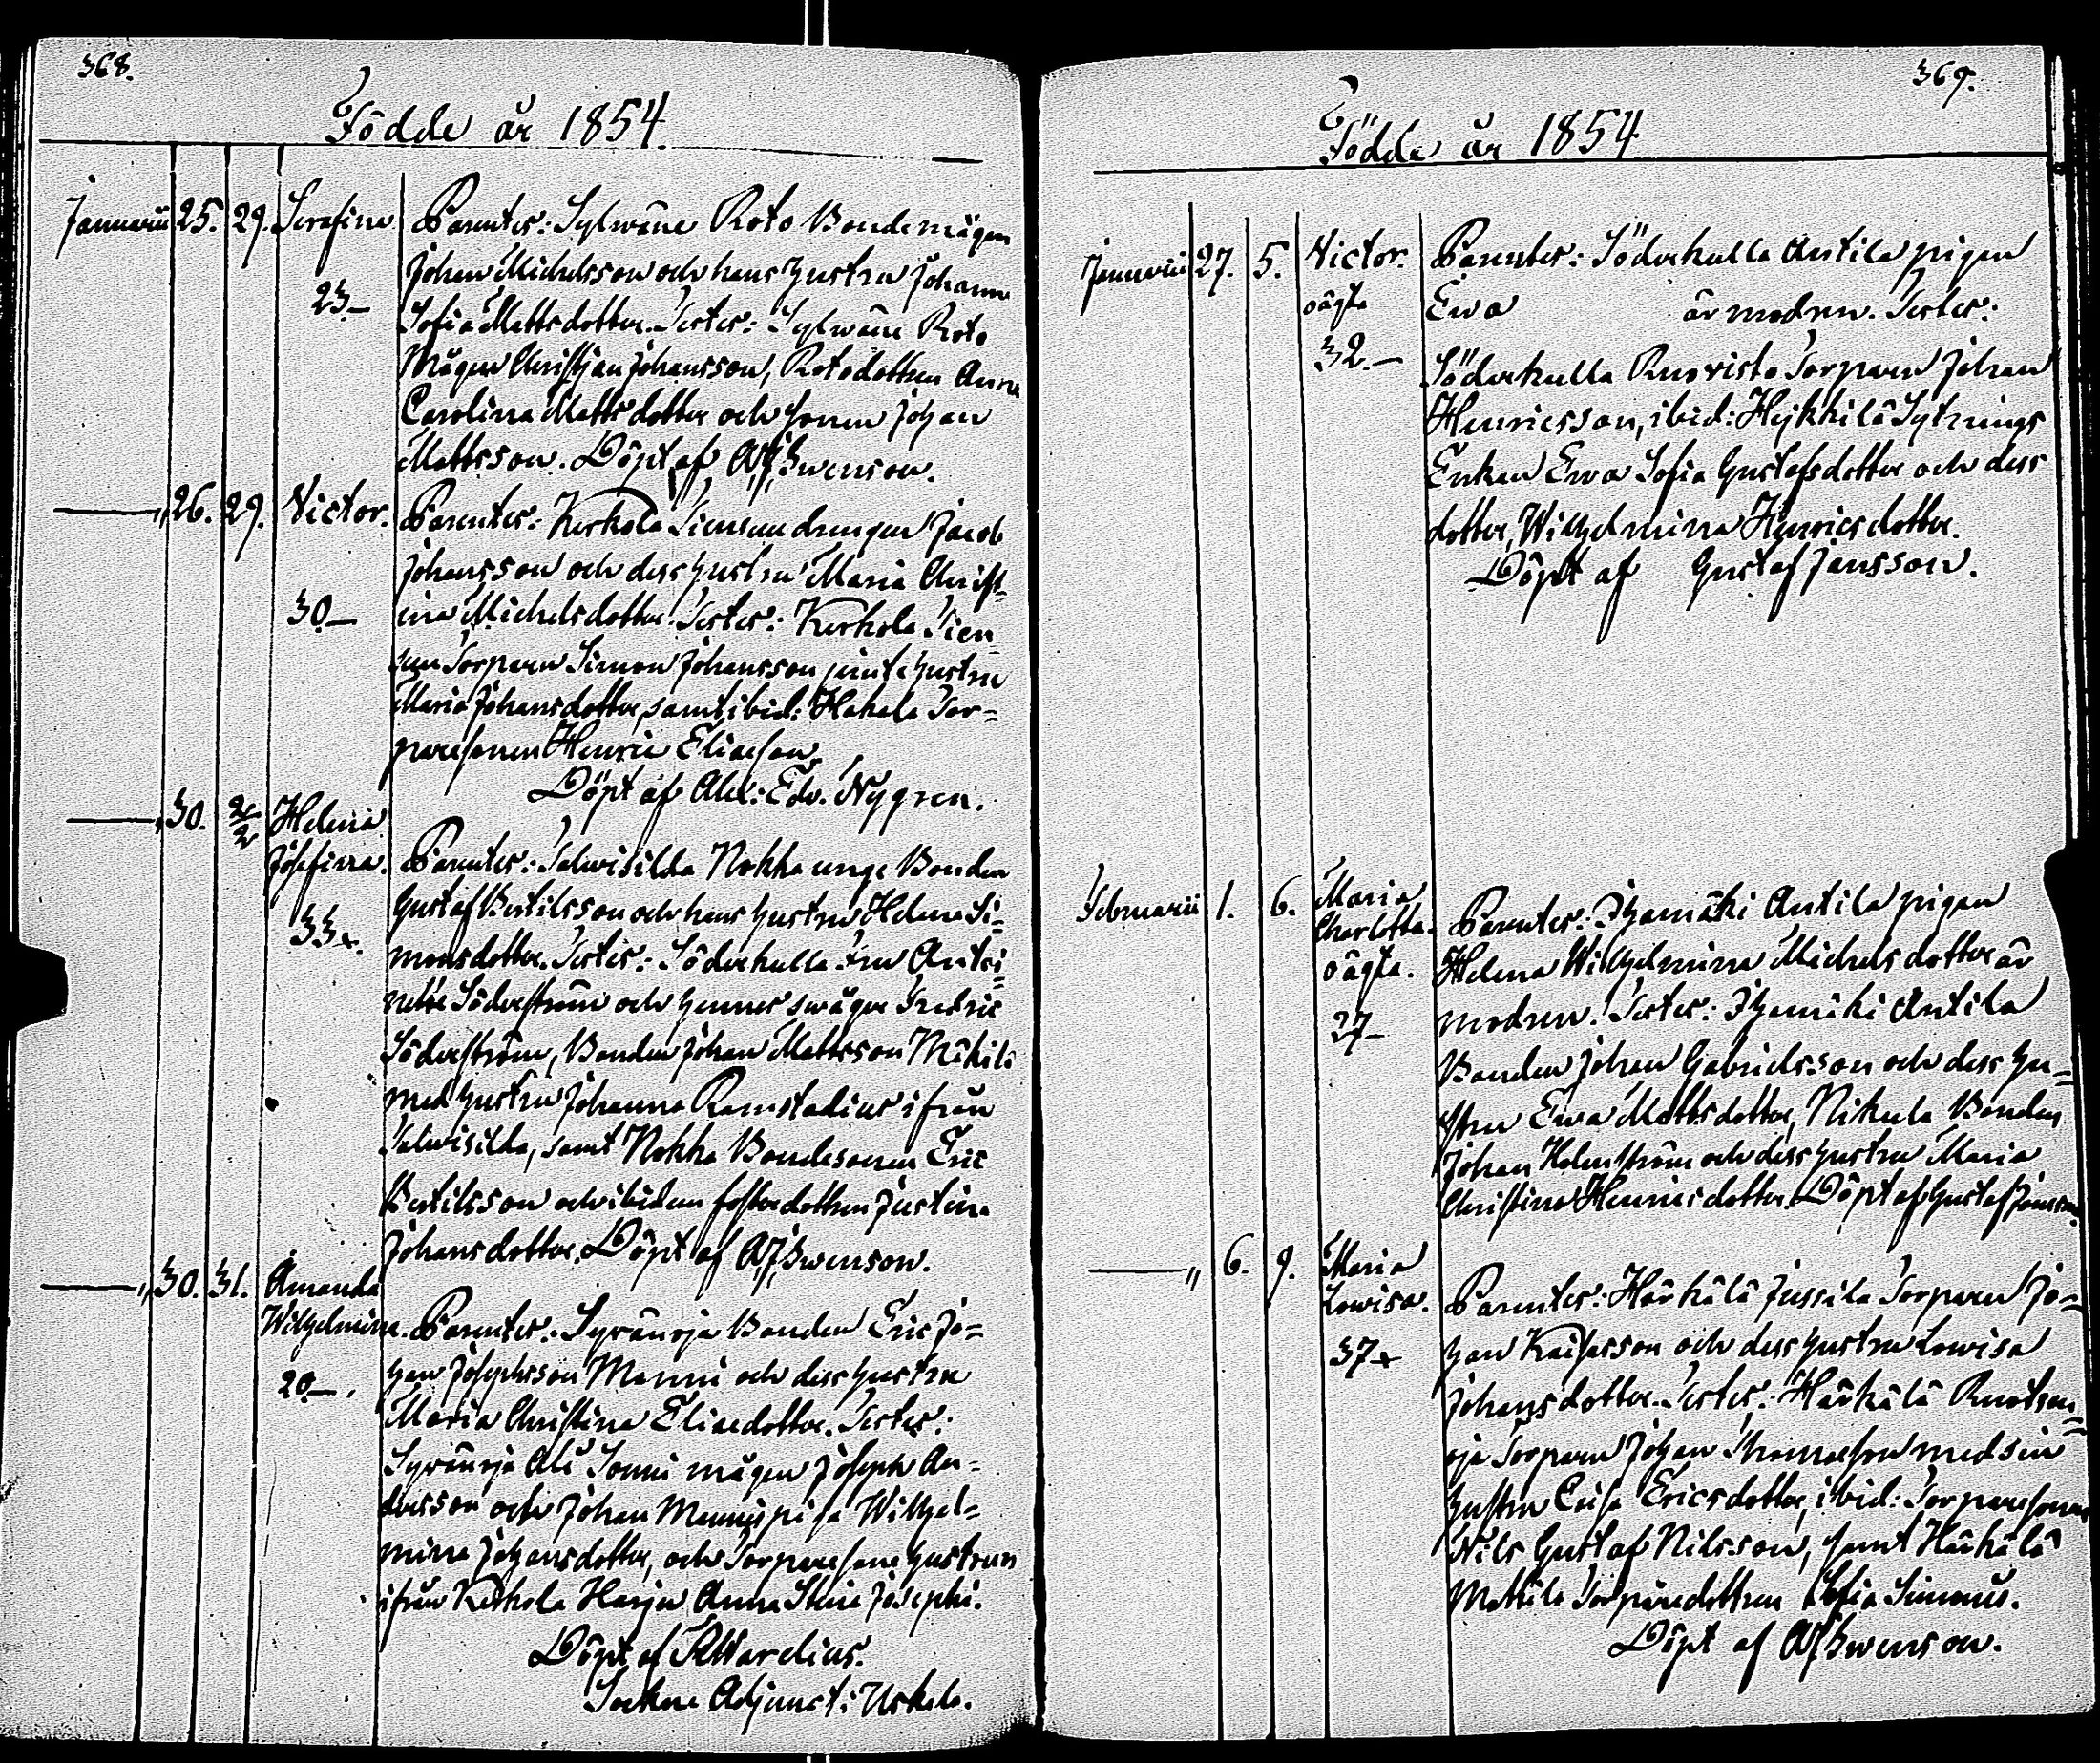 368.
Födde år 1854.
Januarii 25. 29. Serafina Parenter: Sylwäne Roto Bondemågen
Johan Michelsson och hans hustru Johanna
23.— Sofia Mattsdotter. Testes: Sylwäne Roto
Mågen Christjan Johansson, Rotodottren Anna
Carolina Mattsdotter och sonen Johan
Mattsson. Döpt af A.J. Swenson.
—„ 26. 29. Victor. Parenter: Kerkola Siensuu drengen Jacob
Johansson och dess hustru Maria Christ-
30.— ina Michelsdotter. Testes: Kerkola Sien-
suu Torparen Simon Johansson jemte hustru
Maria Johansdotter, samt ibid: Hakala Tor-
paresonen Henric Eliasson.
Döpt af Alex: Edv. Nygren.
—„ 30. 2/2 Helena
Josefina. Parenter: Salwisilda Nokka unge Bonden
Gustaf Bertilsson och hans hustru Helena Si-
33 monsdotter. Testes: Söderkulla Fru Antoi-
nette Söderström och hennes swåger Fredric
Söderström, Bonden Johan Mattsson Mikilä
med hustru Johanna Ramstadius ifrån
Salwisilda, samt Nokka Bondesonen Eric
Bertilsson och ibidem fosterdottren Justina
Johansdotter. Döpt af A.J. Swenson.
—„ 30. 31. Amanda
Wilhelmina. Parenter: Syvänoja Bonden Eric Jo-
20.— han Josephsson Manni och dess hustru
Maria Christina Eliaedotter. Testes:
Syvänoja Ali Sonni mågen Joseph An-
dersson och Johan Mannis piga Wilhel-
mina Johansdotter, och Torparesone hustrun
ifrån Kerkola Harju Anna Stina Josephi.
Döpt af Wardius.
Sockne Adjunct i Uskela.
369.
Födde år 1854
Januarii 27. 5. Victor. Parenter: Söderkulla Antila pigan
oägta Ewa är modren. Testes:
32.— Söderkulla Ruovisto Torparen Johan
Henricsson, ibid: Heikkilä Sytnings
Enkan Ewa Sofia Gustafsdotter och dess
dotter, Wilhelmina Henricsdotter.
Döpt af Gustaf Jansson.
Februarii 1. 6. Maria
Charlotta. Parenter: Ihamäki Antila pigan
oägta. Helena Wilhelmina Michelsdotter är
27— modren. Testes: Ihamäki Antila
Bonden Johan Gabrielsson och dess hu-
stru Ewa Mattsdotter, Nikula Bonden
Johan Holmström och dess hustru Maria
Christina Henricsdotter. Döpt af Gustaf Jansson.
—„ 6. 9. Maria
Lowisa. Parenter: Härkälä Jussila Torparen Jo-
37 han Kaisasson och dess hustru Lowisa
Johansdotter. Testes: Härkälä Ruotsen-
oja Torparen Johan Thomasson med sin
hustru Caisa Ericsdotter, ibid: Torparesonen
Nils Gustaf Nilsson, samt Härkälä
Mattila Torparedottren Sofia Simons.
Döpt af A.J. Swenson.